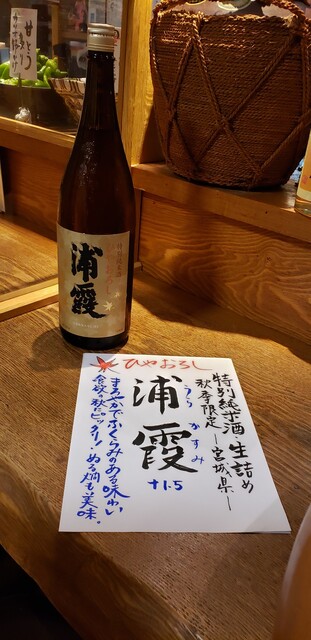 ひやおろし
特別純米酒 生詰め
秋季限定 ー宮城県ー
浦霞
うらかすみ
+1.5
まろやかでふくらみのある味わい。
食欲の秋にピッタリ！ぬる燗も美味。
浦霞